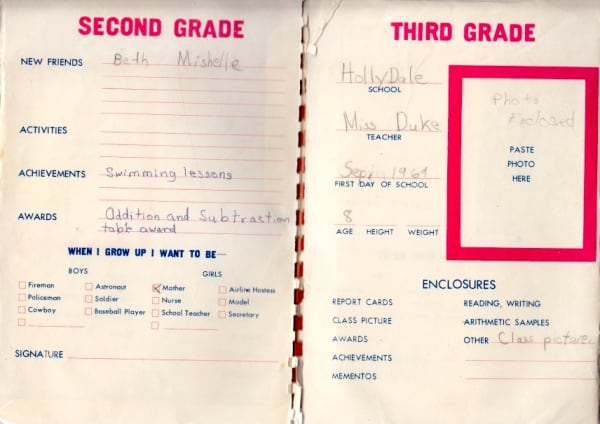 SECOND GRADE
NEW FRIENDS Beth Mishelle
ACTIVITIES
ACHIEVEMENTS Swimming lessons
AWARDS Oddition and Subtraction
table award
WHEN I GROW UP I WANT TO BE—
BOYS GIRLS
Fireman Astronaut Mother Airline Hostess
Policeman Soldier Nurse Model
Cowboy Baseball Player School Teacher Secretary
SIGNATURE
THIRD GRADE
HollyDale
SCHOOL
Miss Duke
TEACHER
Sep. 1969
FIRST DAY OF SCHOOL
8
AGE HEIGHT WEIGHT
Photo
Enclosed
PASTE
PHOTO
HERE
ENCLOSURES
REPORT CARDS READING, WRITING
CLASS PICTURE ARITHMETIC SAMPLES
AWARDS OTHER Class picture
ACHIEVEMENTS
MEMENTOS